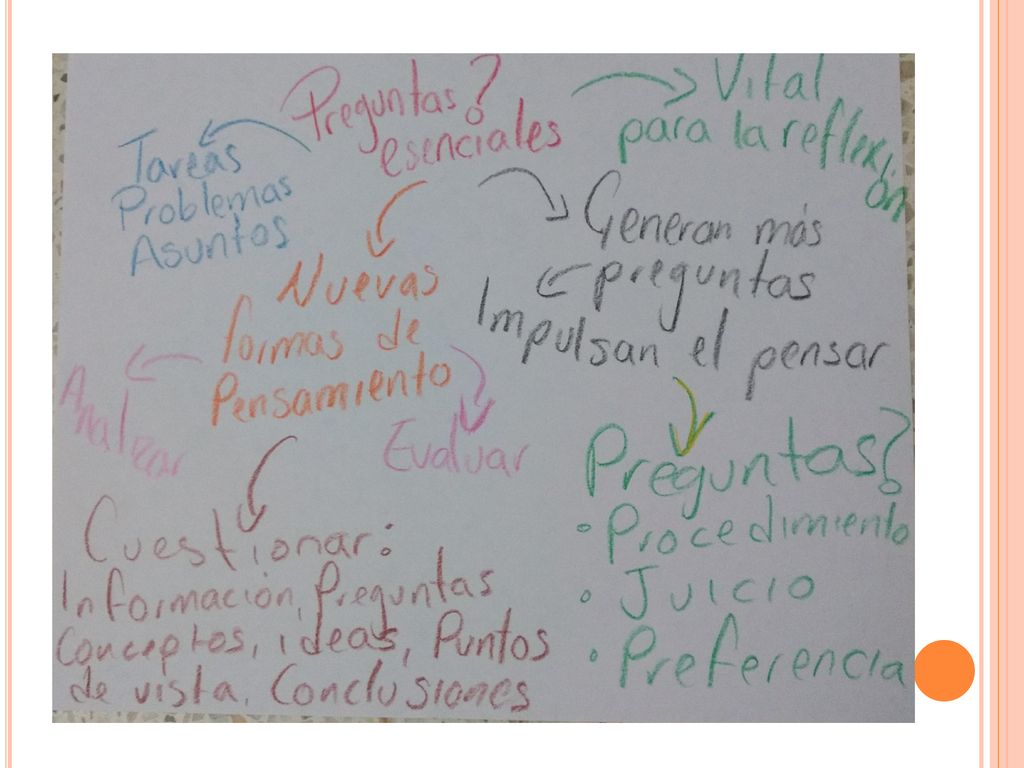 Preguntas?
esenciales
Vital
para la reflexi
ón
Tareas
Problemas
Asuntos
Generan más
preguntas
Impulsan el pensar
Nuevas
formas de
Pensamiento
Analizar
Evaluar
Cuestionar:
Información, Preguntas
Conceptos, ideas, Puntos
de vista, Conclusiones
Preguntas?
• Procedimiento
• Juicio
• Preferencia